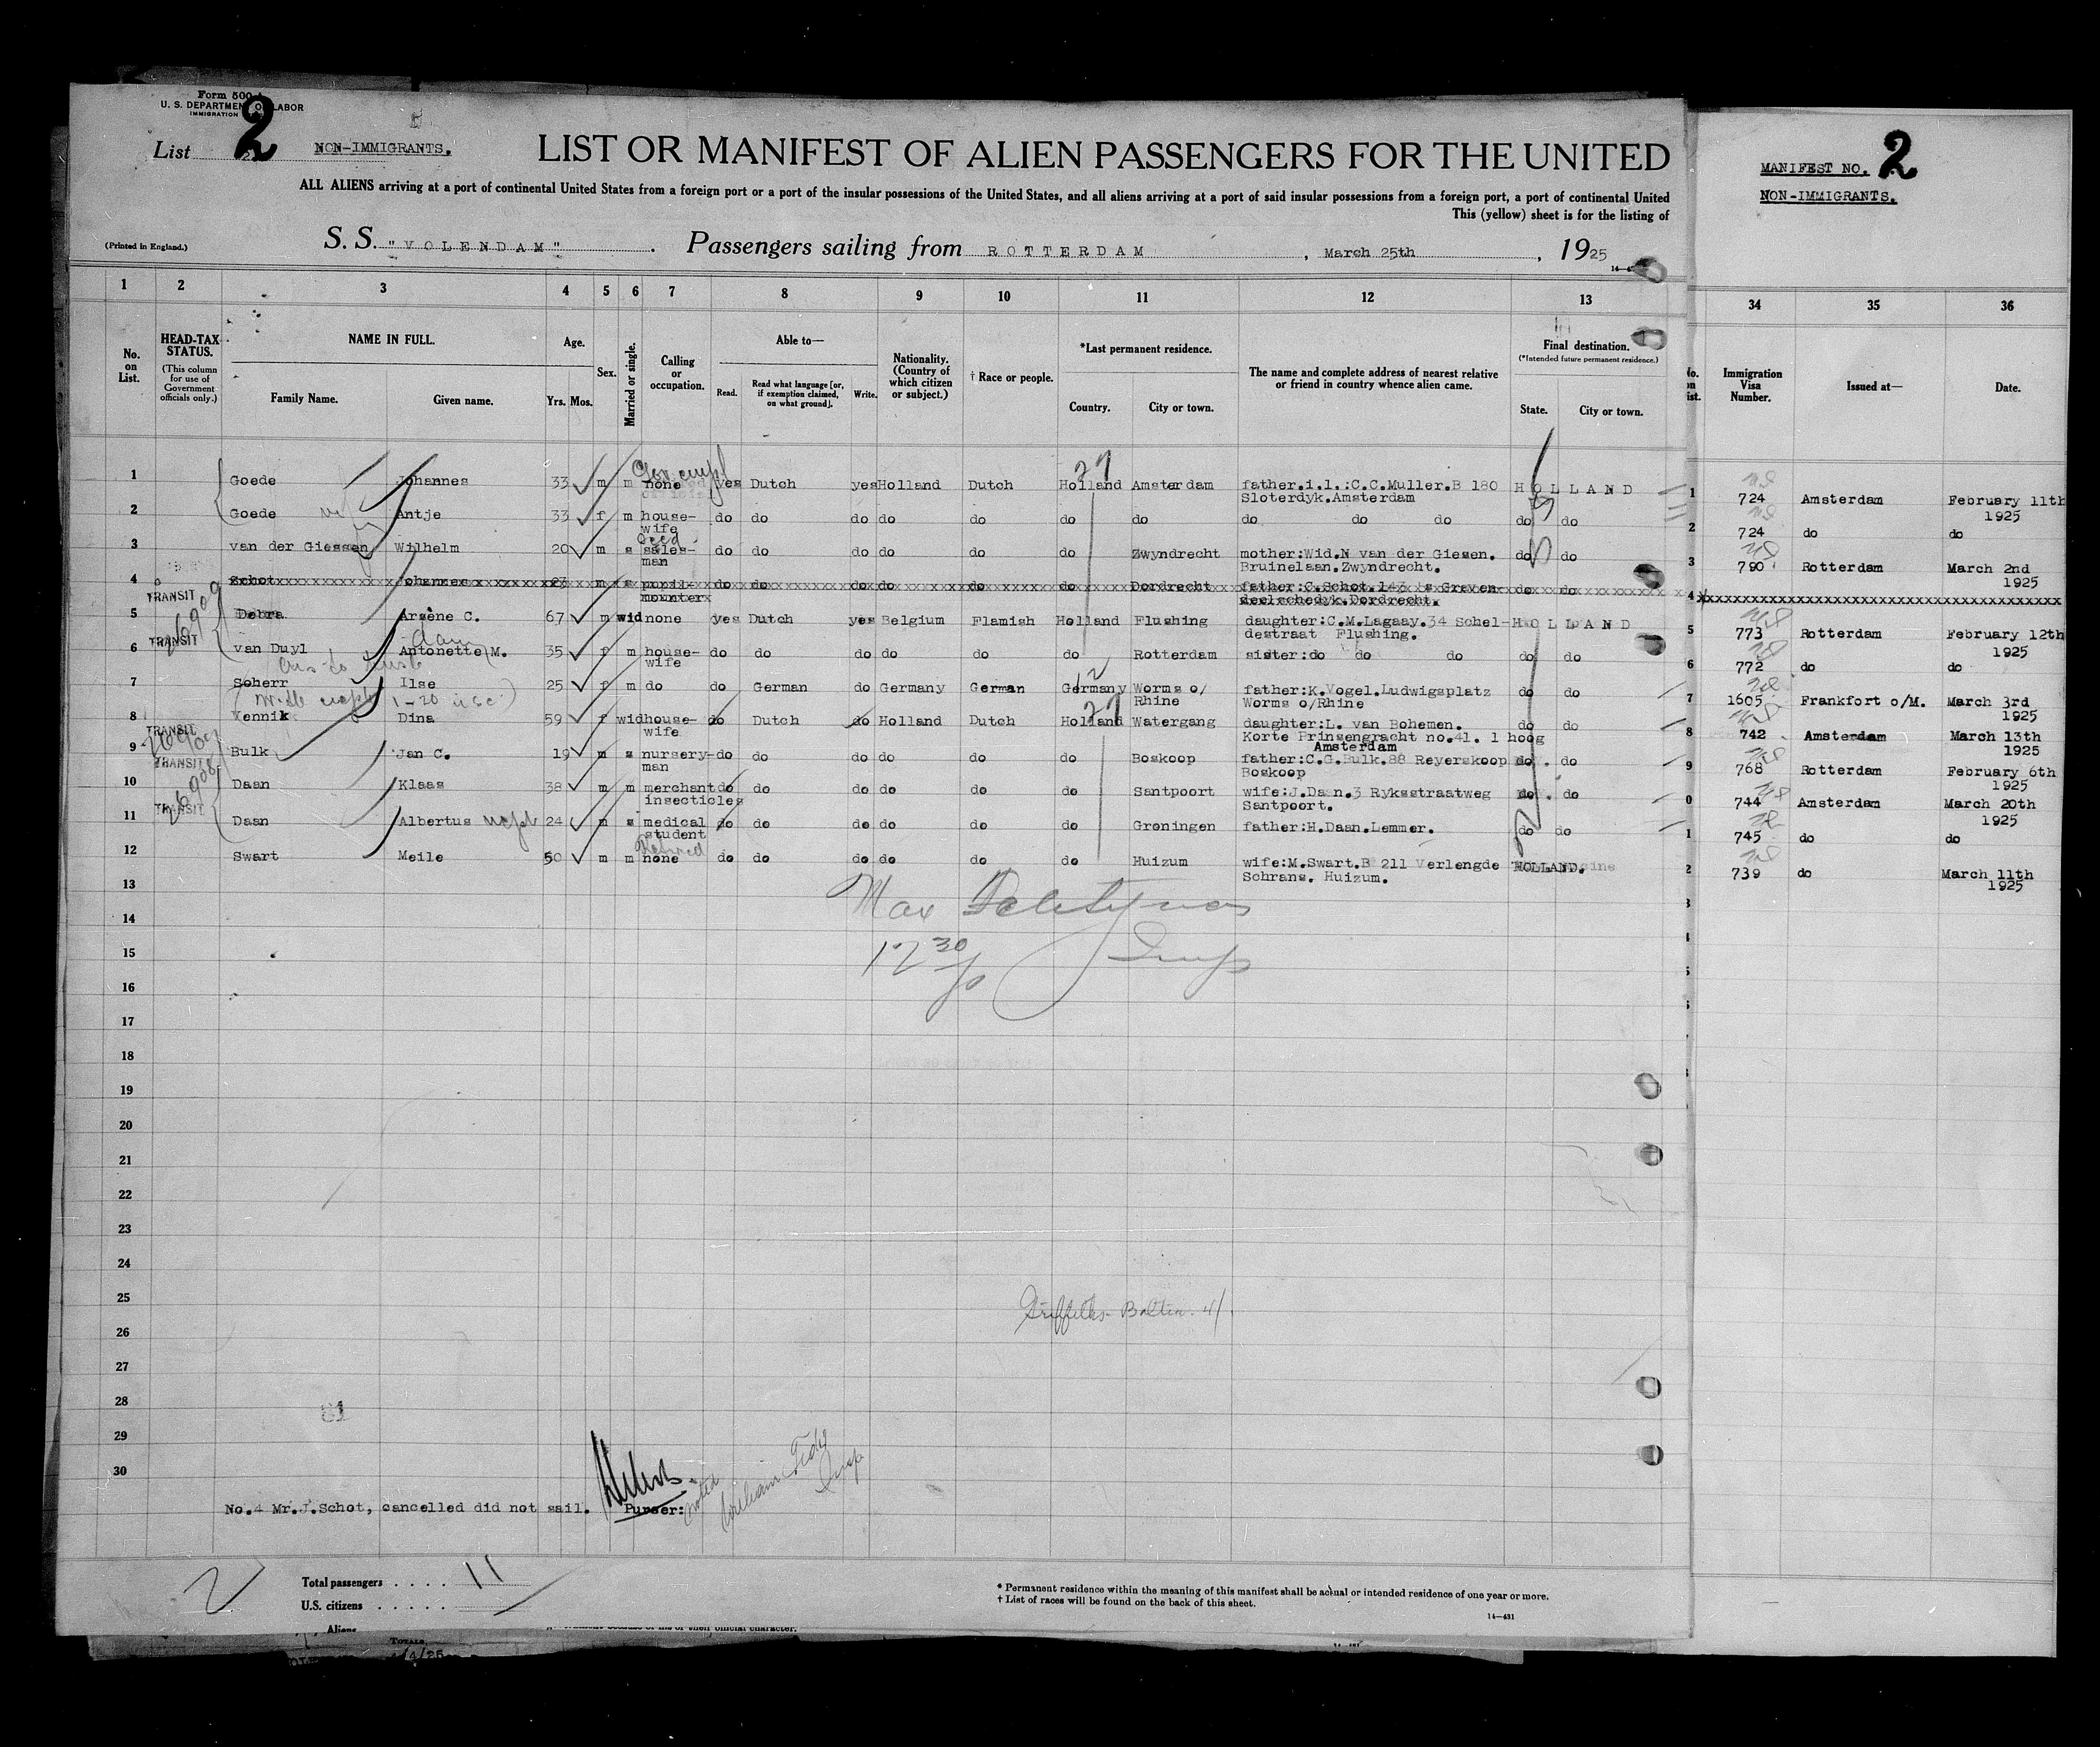 Form 500
U. S. DEPARTMENT OF LABOR
IMMIGRATION
List 2
NON-IMMIGRANTS.
LIST OR MANIFEST OF ALIEN PASSENGERS FOR THE UNITED
ALL ALIENS arriving at a port of continental United States from a foreign port or a port of the insular possessions of the United States, and all aliens arriving at a port of said insular possessions from a foreign port, a port of continental United
This (yellow) sheet is for the listing of
(Printed in England.)
S. S. "VOLENDAM" . Passengers sailing from ROTTERDAM , March 25th , 1925
MANIFEST NO. 2
NON-IMMIGRANTS.
1 2 3 4 5 6 7 8 9 10 11 12 13 34 35 36
No. on List.
HEAD-TAX STATUS.
(This column for use of Government officials only.)
NAME IN FULL.
Family Name. Given name.
Age.
Yrs. Mos.
Sex.
Married or single.
Calling or occupation.
Able to—
Read. Read what language [or, if exemption claimed, on what ground]. Write.
Nationality. (Country of which citizen or subject.)
† Race or people.
*Last permanent residence.
Country. City or town.
The name and complete address of nearest relative or friend in country whence alien came.
Final destination.
(*Intended future permanent residence.)
State. City or town.
Immigration Visa Number.
Issued at—
Date.
1 Goede Johannes 33 m m Gov empl none yes Dutch yes Holland Dutch Holland Amsterdam father.i.l.:C.C.Muller.B 180 HOLLAND 1 724 Amsterdam February 11th
Sloterdyk.Amsterdam 1925
2 Goede Antje 33 f m house- do do do do do do do do do do do do 2 724 do do
wife
3 van der Giessen Wilhelm 20 m s Seed sales- do do do do do do Zwyndrecht mother:Wid.N van der Giesen. do do 3 790 Rotterdam March 2nd
man Bruinelaan.Zwyndrecht. 1925
4 Schot Johannes 23 m s pupil- do do do do do do Dordrecht father:C.Schot.143 's Graven- do do 4
TRANSIT mounter deelschedyk.Dordrecht.
5 Debra Arsène C. 67 m wid none yes Dutch yes Belgium Flemish Holland Flushing daughter:C.M.Lagaay.34 Schel- HOLLAND 5 773 Rotterdam February 12th
TRANSIT destraat Flushing. 1925
6 van Duyl Antonette M. 35 f m house- do do do do do do Rotterdam sister:do do do do do 6 772 do do
wife
7 Scherr Ilse 25 f m do do German do Germany German Germany Worms o/ father:K.Vogel.Ludwigsplatz do do 7 1605 Frankfort o/M. March 3rd
Rhine Worms o/Rhine 1925
8 Kennik Dina 59 f wid house- do Dutch do Holland Dutch Holland Watergang daughter:L. van Bohemen. do do 8 742 Amsterdam March 13th
TRANSIT wife Korte Prinsengracht no.41. 1 hoog 1925
Amsterdam
9 Bulk Jan C. 19 m s nursery- do do do do do do Boskoop father:C.G.Bulk.88 Reyerskoop do. do 9 768 Rotterdam February 6th
TRANSIT man Boskoop 1925
10 Daan Klaas 38 m m merchant do do do do do do Santpoort wife:J.Daan.3 Ryksstraatweg do. do 0 744 Amsterdam March 20th
TRANSIT insecticles Santpoort. 1925
11 Daan Albertus 24 m s medical do do do do do do Groningen father:H.Daan.Lemmer. do do 1 745 do do
student
12 Swart Meile 50 m m Retired none do do do do do do Huizum wife:M.Swart.B 211 Verlengde HOLLAND. 2 739 do March 11th
Schrans. Huizum. 1925
13
14
15
16
17
18
19
20
21
22
23
24
25
26
27
28
29
30
27
2
27
Max
12 30
Insp
26909
26908
81
No.4 Mr.J.Schot, cancelled did not sail. Purser:
noted
William
Insp
Total passengers . . . . . 11
U.S. citizens . . . . .
Aliens
* Permanent residence within the meaning of this manifest shall be actual or intended residence of one year or more.
† List of races will be found on the back of this sheet.
14—431
TOTALS
4/4/25